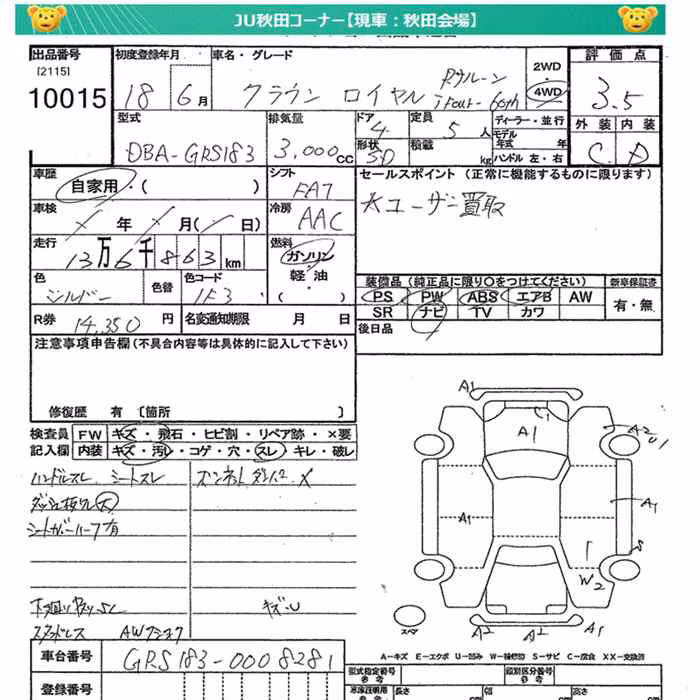 JU秋田コーナー【現車：秋田会場】
出品番号 初度登録年月 車名・グレード 2WD 評価点
[2115] Rサルーン 4WD
10015 18 6月 クラウン ロイヤル i-Four 60th 3.5
型式 排気量 ドア 定員 ディーラー・並行 外装 内装
4 5人 モデル年式 年
DBA-GRS183 3,000cc 形状 積載 C D
5D kg ハンドル 左・右
車歴 シフト セールスポイント (正常に機能するものに限ります)
自家用・( ) FAT
車検 冷房 大ユーザー買取
年 月( 日) AAC
走行 燃料
13万6千863km ガソリン
色 色替 色コード 軽・油 装備品 (純正品に限り○をつけてください) 新車保証書
シルバー 1F3 ( ) PS PW ABS エアB AW 有・無
SR ナビ TV カワ
R券 14,350円 名変通知期限 月 日 後日品
注意事項申告欄(不具合内容等は具体的に記入して下さい)
修復歴 有 [箇所 ]
検査員 FW キズ・飛石・ヒビ割・リペア跡・×要
記入欄 内装 キズ・汚レ・コゲ・穴・スレ・キレ・破レ
ハンドルスレ シートスレ ボンネットダンパー×
シートカバーハーフ有
キズ・U
A1
A1 A2 U1
A1 A1
S
W2
スペア
A2 A2 A1
A-キズ E-エクボ U-凹み W-補修跡 S-サビ C-腐食 XX-交換済
車台番号 GRS183-0008281
登録番号
型式指定番号 参考 類別区分番号 参考
長さ cm 幅 cm 高さ cm